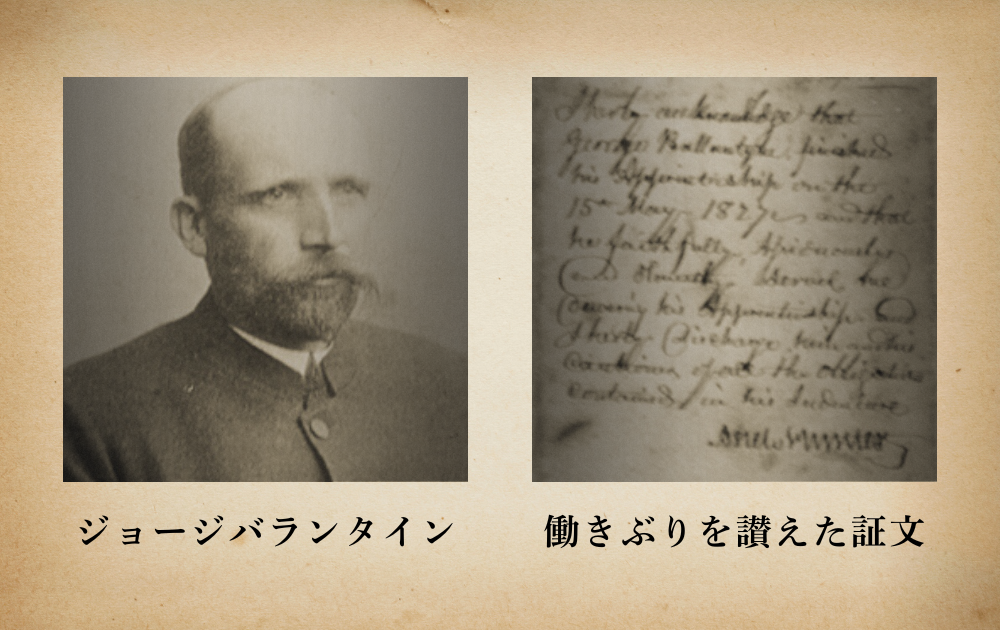 I hereby acknowledge that
George Ballantyne finished
his Apprenticeship on the
15th May 1827 and that
he faithfully,
and Honestly Served me
his Apprenticeship and
I hereby Discharge him
of all the obligations
contained in his Indenture
ジョージバランタイン
働きぶりを讃えた証文